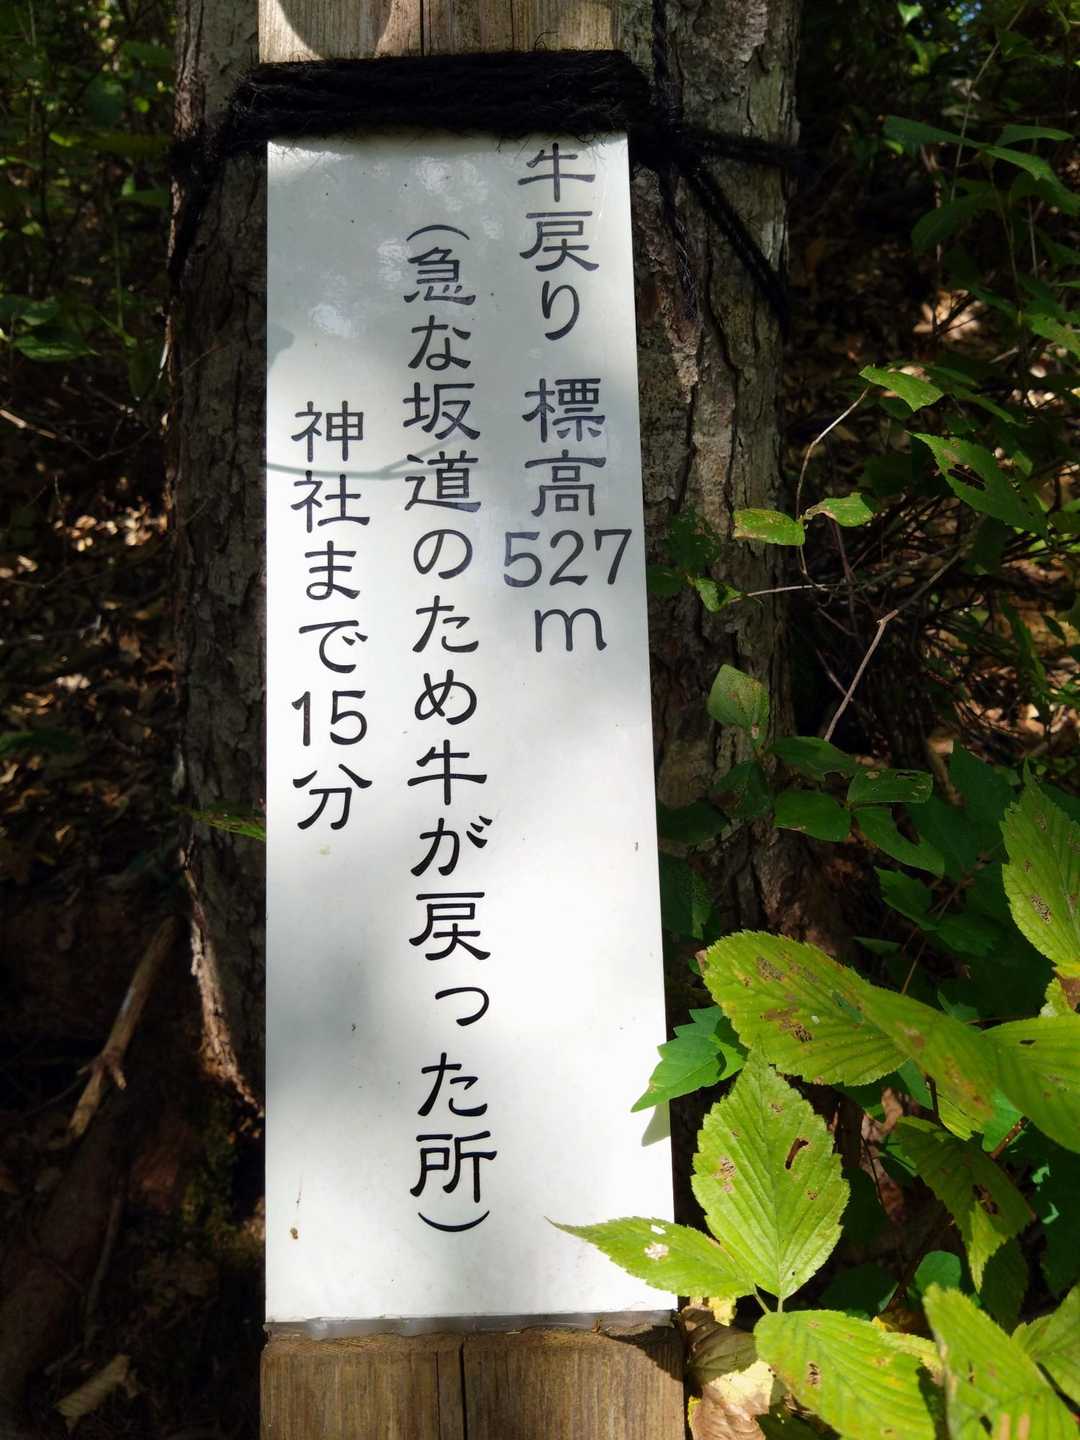 牛戻り 標高527m
（急な坂道のため牛が戻った所）
神社まで15分